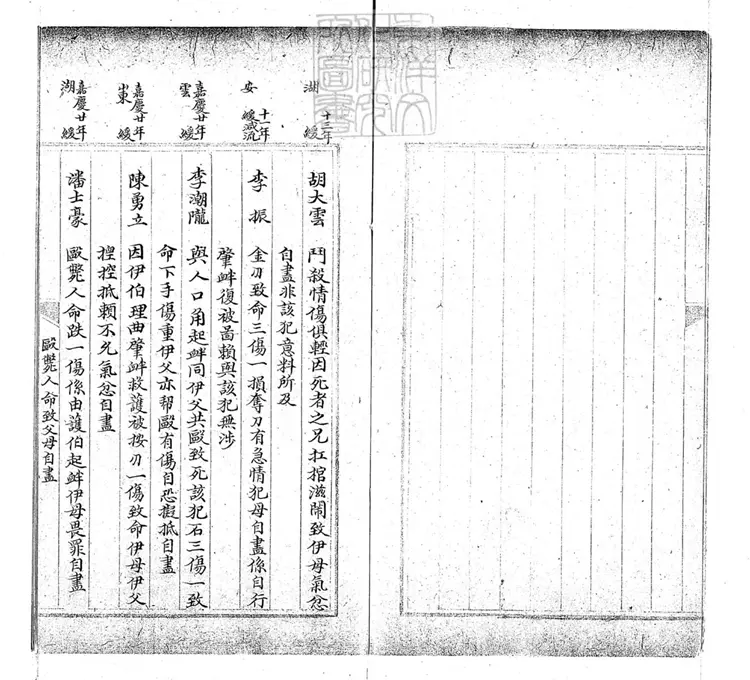 十三年
湖 緩
胡大雲 鬥殺情傷俱輕因死者之兄扛棺滋鬧致伊母氣忿
自盡非該犯意料所及
十一年
安 緩減流
李振 金刃致命三傷一損奪刀有急情犯母自盡係自行
肇衅復被畐賴與該犯無涉
嘉慶廿年
雲 緩
李潮隴 與人口角起衅同伊父共毆致死該犯石三傷一致
命下手傷重伊父亦帮毆有傷自恐擬抵自盡
嘉慶廿年
山東 緩
陳勇立 因伊伯理曲肇衅救護被按刃一傷致命伊母伊父
捏控抵賴不允氣忿自盡
嘉慶廿年
湖 緩
潘士豪 毆斃人命跌一傷係由護伯起衅伊母畏罪自盡
毆斃人命致父母自盡